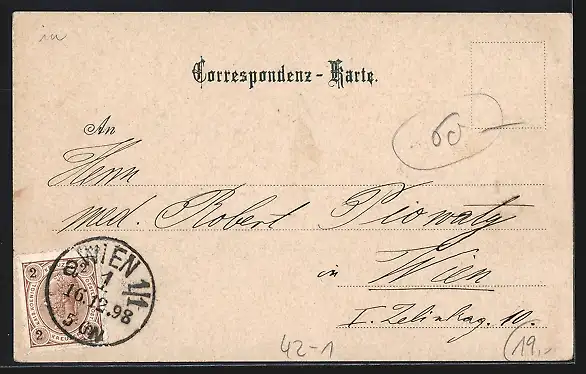 in
Correspondenz-Karte.
60
An
Herrn
med. Robert Piowaty
in Wien
I. Zelinkag. 10.
WIEN 1/1
1
16.12.98
5
2
2
42-1
19,-